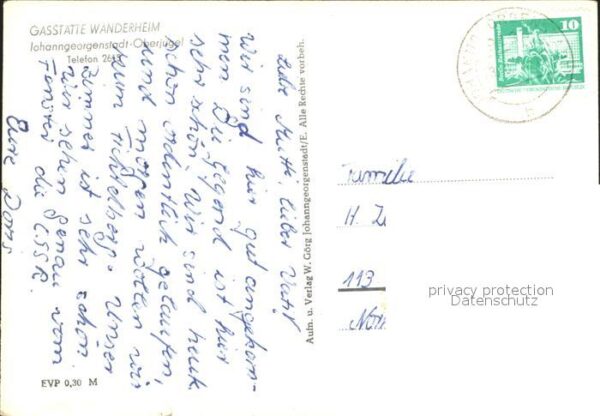 GASSTÄTTE WANDERHEIM
Johanngeorgenstadt-Oberjugel
Telefon
Liebe Mutti, lieber Vati!
Wir sind hier gut angekom-
men. Die Gegend ist hier
sehr schön. Wir sind heute
schon ordentlich gelaufen,
und morgen wollen wir
zum Fichtelberg. Unser
Zimmer ist sehr schön.
Wir sehen genau vom
die CSSR.
Eure
EVP 0,30 M
Aufn. u. Verlag W. Görg Johanngeorgenstadt/E. Alle Rechte vorbeh.
10
Familie
H. Z
113
privacy protection
Datenschutz